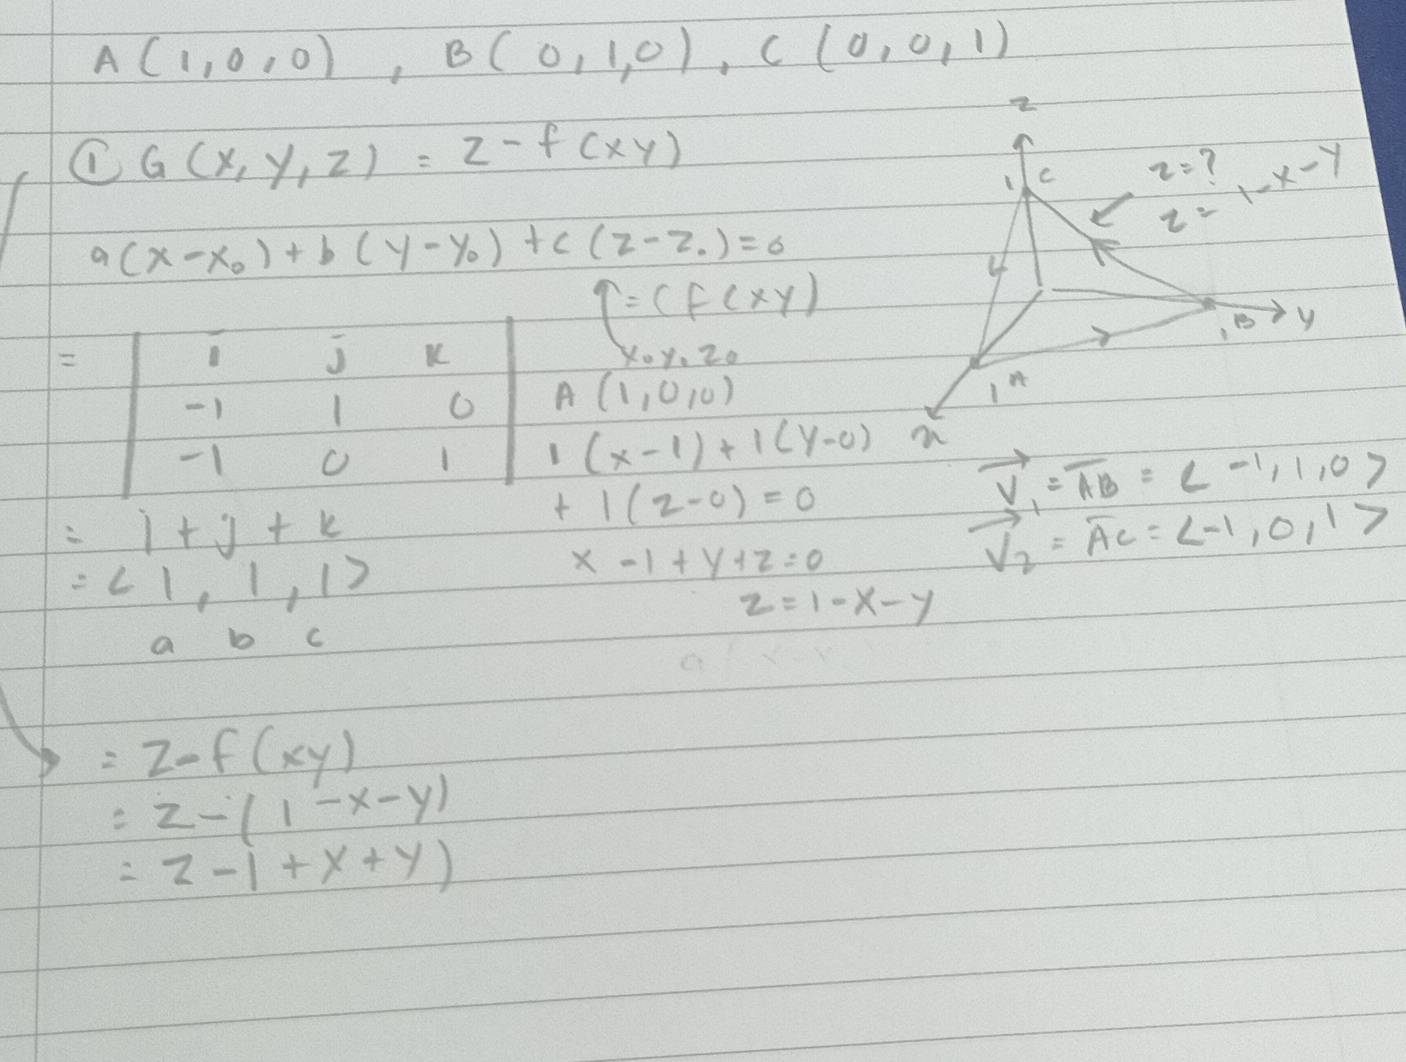 A (1,0,0) , B( 0,1,0) , C (0,0,1)
① G(x,y,z) = z-f(xy)
a(x-x₀)+b(y-y₀)+c(z-z₀)=0
=(f(xy)
x₀ y₀ z₀
= | i j k |
| -1 1 0 |
| -1 0 1 |
= i + j + k
= < 1, 1, 1>
a b c
A (1,0,0)
1(x-1)+1(y-0)
+ 1(z-0)=0
x -1+y+z=0
z=1-x-y
z
1 C
z=?
z= 1-x-y
1 B y
1 A
x
V₁ = AB = <-1,1,0>
V₂ = AC = <-1,0,1>
= z-f(xy)
= z-(1-x-y)
= z-1+x+y)